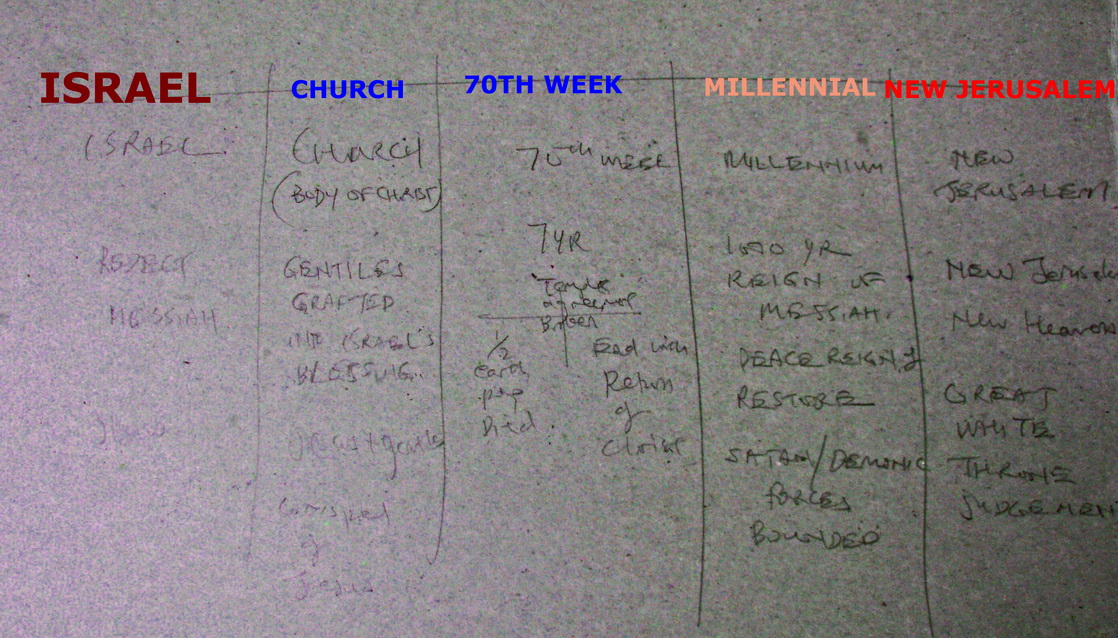 ISRAEL
CHURCH
70TH WEEK
MILLENNIAL
NEW JERUSALEM
ISRAEL
REJECT
MESSIAH
CHURCH
(BODY OF CHRIST)
GENTILES
GRAFTED
INTO ISRAEL'S
Jesus
70th WEEK
7 YR
Temple
agreement
Broken
1/2
earth
pop
Died
End with
Return
of
Christ
MILLENNIUM
1000 YR
REIGN OF
MESSIAH.
PEACE REIGN
RESTORE
SATAN/DEMONIC
FORCES
BOUNDED
NEW
JERUSALEM
NEW Jerusale
New Heaven
GREAT
WHITE
THRONE
JUDGEMEN